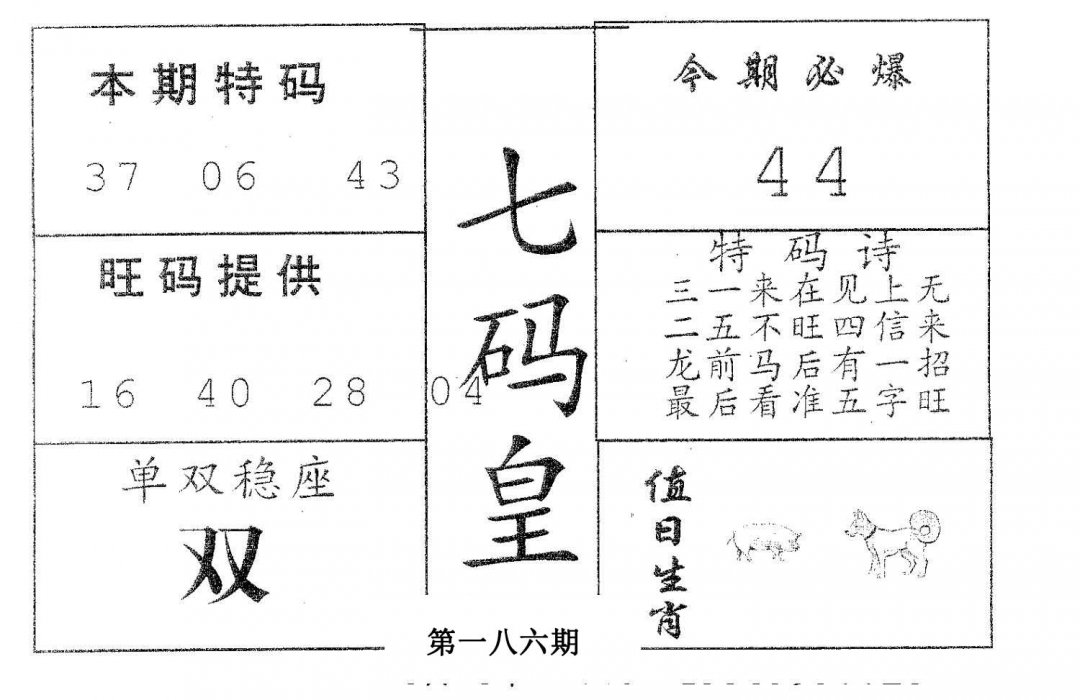 本期特码
37 06 43
旺码提供
16 40 28 04
单双稳座
双
七码皇
第一八六期
今期必爆
44
特码诗
三一来在见上无
二五不旺四信来
龙前马后有一招
最后看准五字旺
值日生肖